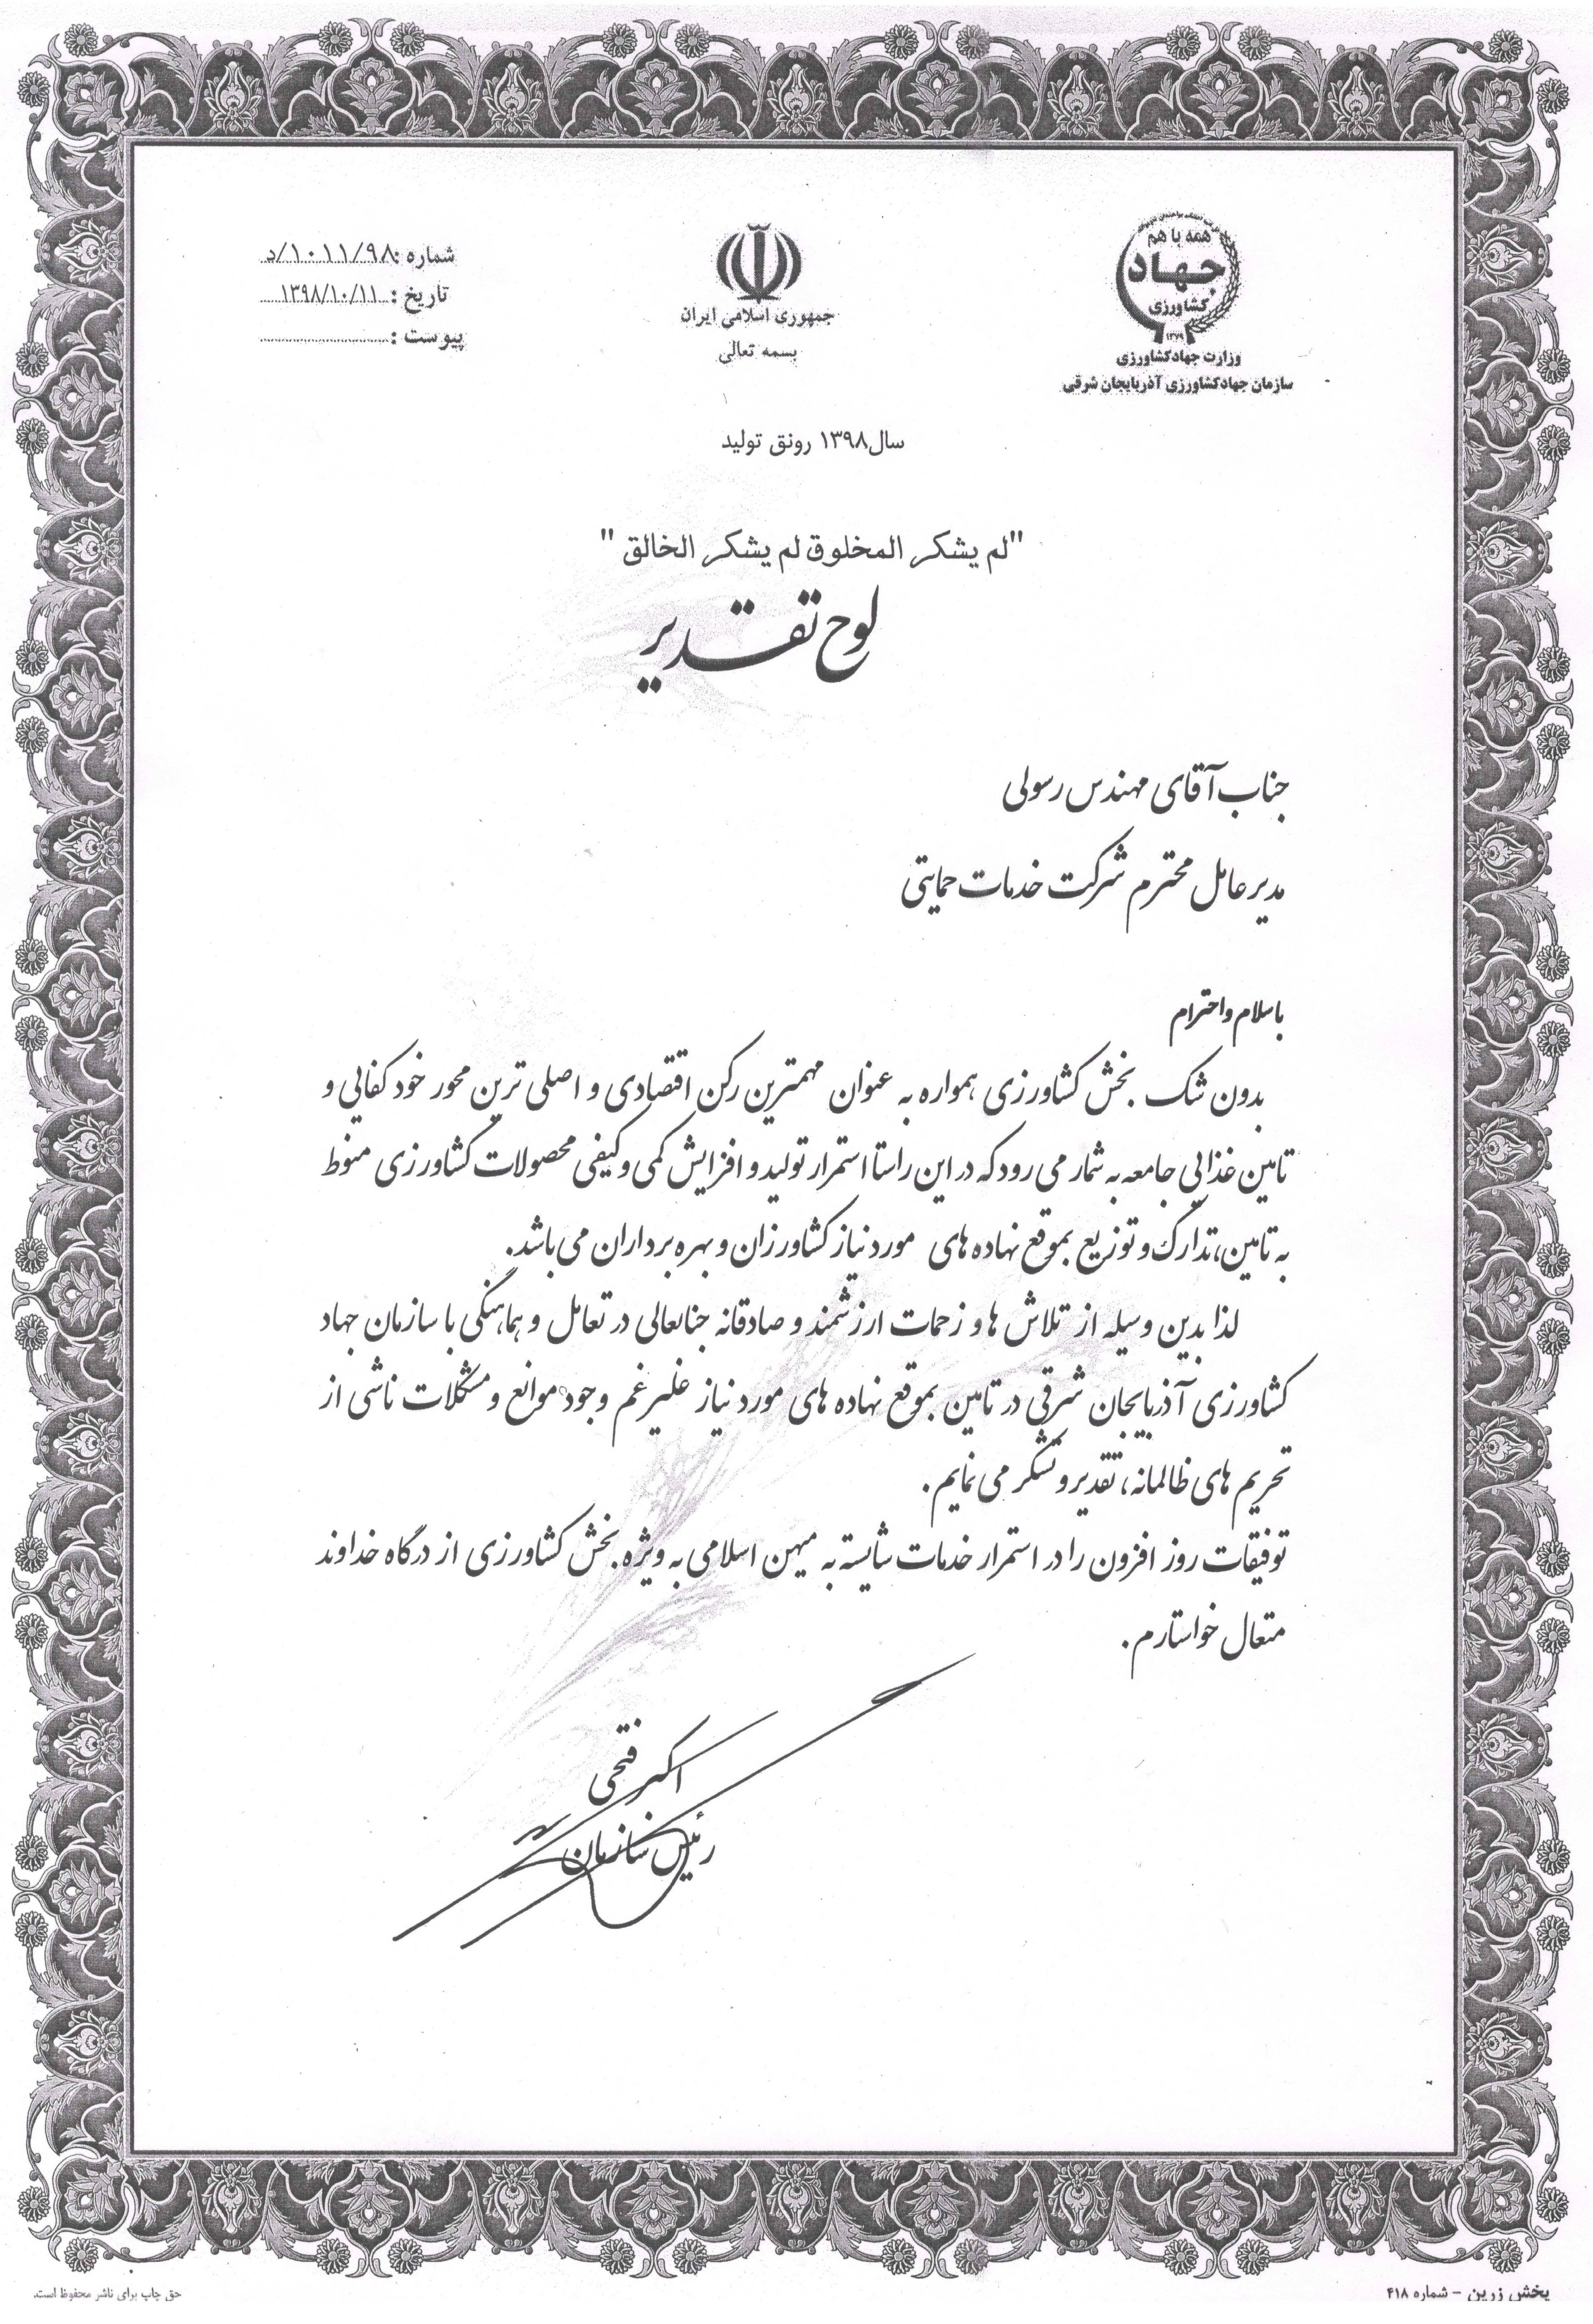 همه با هم
جهاد
کشاورزی
۱۳۷۹
وزارت جهادکشاورزی
سازمان جهادکشاورزی آذربایجان شرقی
جمهوری اسلامی ایران
بسمه تعالی
شماره :۱۰۱۱/۹۸/د
تاریخ : ۱۳۹۸/۱۰/۱۱
پیوست :
سال۱۳۹۸ رونق تولید
"لم یشکر المخلوق لم یشکر الخالق "
لوح تقدیر
جناب آقای مهندس رسولی
مدیر عامل محترم شرکت خدمات حمایتی
باسلام و احترام
بدون شک بخش کشاورزی همواره به عنوان مهمترین رکن اقتصادی و اصلی ترین محور خود کفایی و
تامین غذایی جامعه به شمار می رود که در این راستا استمرار تولید و افزایش کمی و کیفی محصولات کشاورزی منوط
به تامین، تدارک و توزیع بموقع نهاده های مورد نیاز کشاورزان و بهره برداران می باشد.
لذا بدین وسیله از تلاش ها و زحمات ارزشمند و صادقانه جنابعالی در تعامل و هماهنگی با سازمان جهاد
کشاورزی آذربایجان شرقی در تامین بموقع نهاده های مورد نیاز علیرغم وجود موانع و مشکلات ناشی از
تحریم های ظالمانه، تقدیر و تشکر می نمایم.
توفیقات روز افزون را در استمرار خدمات شایسته به میهن اسلامی به ویژه بخش کشاورزی از درگاه خداوند
متعال خواستارم.
اکبر فتحی
رئیس سازمان
پخش زرین - شماره ۴۱۸
حق چاپ برای ناشر محفوظ است.